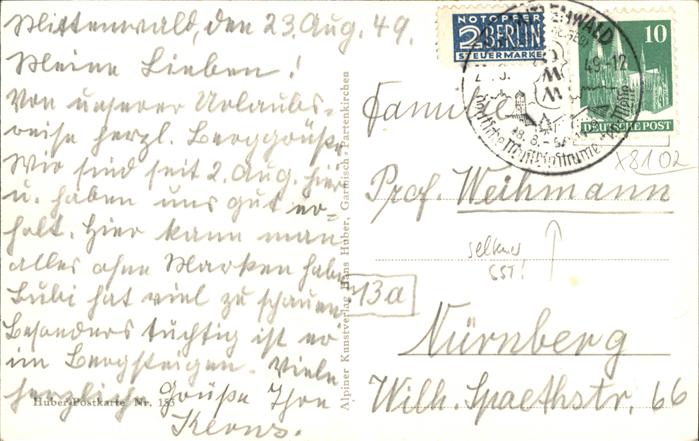 Mittenwald, den 23. Aug. 49.
Meine Lieben!
Von unserer Urlaubs-
reise herzl. Berggrüße.
Wir sind seit 2. Aug. hier
u. haben uns gut er
holt. Hier kann man
alles ohne Marken haben
Bubi hat viel zu schauen
Besonders tüchtig ist er
im Bergsteigen. Viele
herzlich Grüße Ihre
Kerns.
Huber-Postkarte Nr. 183
Alpiner Kunstverlag Hans Huber, Garmisch-Partenkirchen
NOTOPFER
2 BERLIN
STEUERMARKE
10
DEUTSCHE POST
49-12
X8102
Familie
Prof. Weihmann
seltener
SST!
13a
Nürnberg
Wilh. Spaethstr. 66